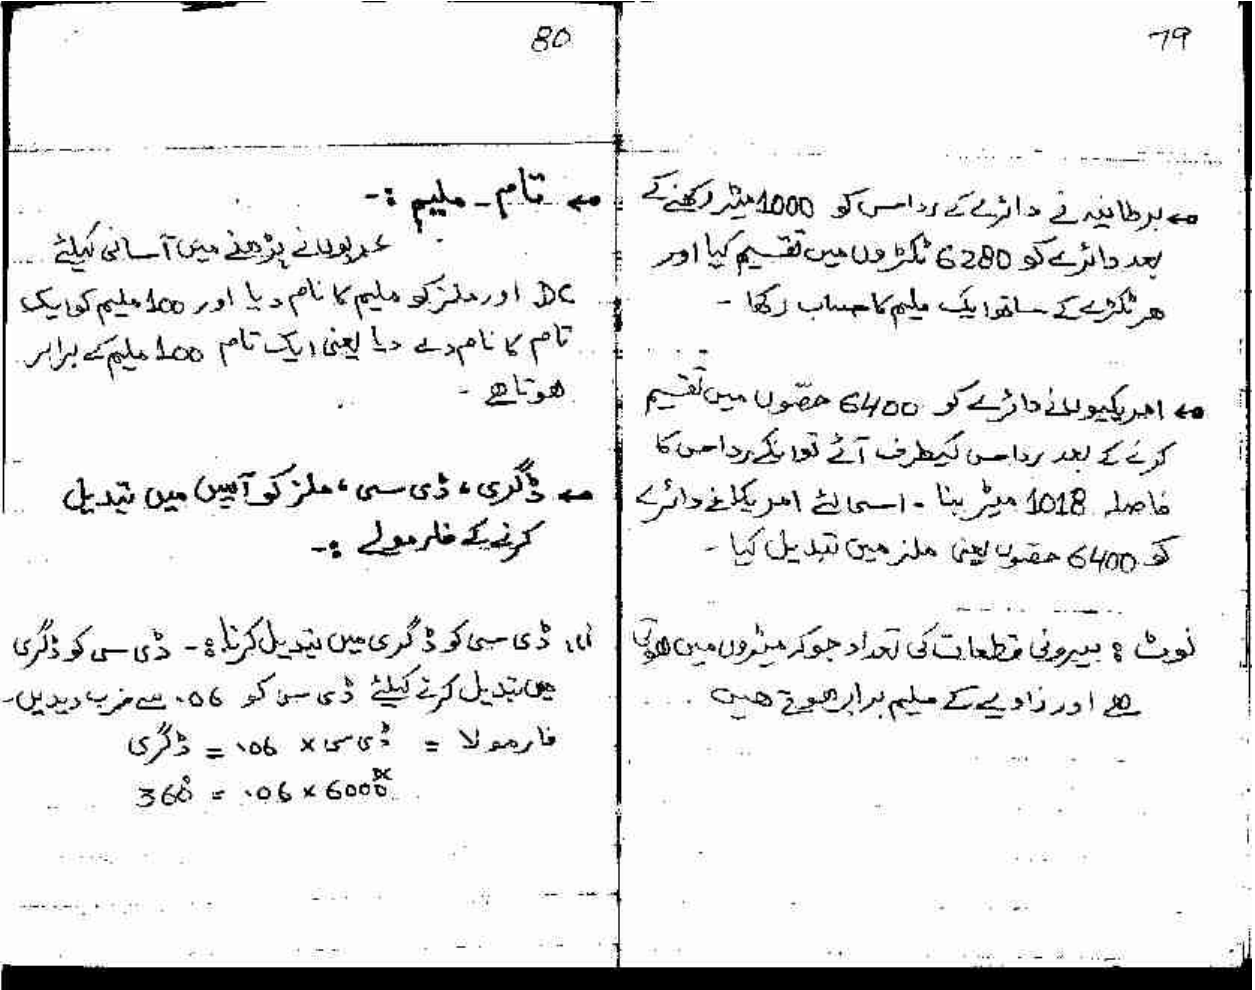 79
برطانیہ نے دائرے کے رداس کو 1000 میٹر رکھنے کے
بعد دائرے کو 6280 ٹکڑوں میں تقسیم کیا اور
ہر ٹکڑے کے ساتھ ایک ملیم کا حساب رکھا -
امریکیوں نے دائرے کو 6400 حصّوں میں تقسیم
کرنے کے بعد رداس کیطرف آئے تو انکے رداس کا
فاصلہ 1018 میٹر بنا - اسی لئے امریکا نے دائرے
کو 6400 حصّوں یعنی ملز میں تبدیل کیا -
نوٹ : بیرونی قطعات کی تعداد جو کہ میٹروں میں ہوتی
ہے اور زاویے کے ملیم برابر ہوتے ہیں
80
تام - ملیم :-
عربوں نے پڑھنے میں آسانی کیلئے
DC اور ملز کو ملیم کا نام دیا اور 100 ملیم کو ایک
تام کا نام دے دیا یعنی ایک تام 100 ملیم کے برابر
ہوتا ہے -
ڈگری ، ڈی سی ، ملز کو آپس میں تبدیل
کرنے کے فارمولے :-
ڈی سی کو ڈگری میں تبدیل کرنا :- ڈی سی کو ڈگری
میں تبدیل کرنے کیلئے ڈی سی کو .06 سے ضرب دیدیں -
فارمولا = ڈی سی × .06 = ڈگری
6000 DC × .06 = 360°